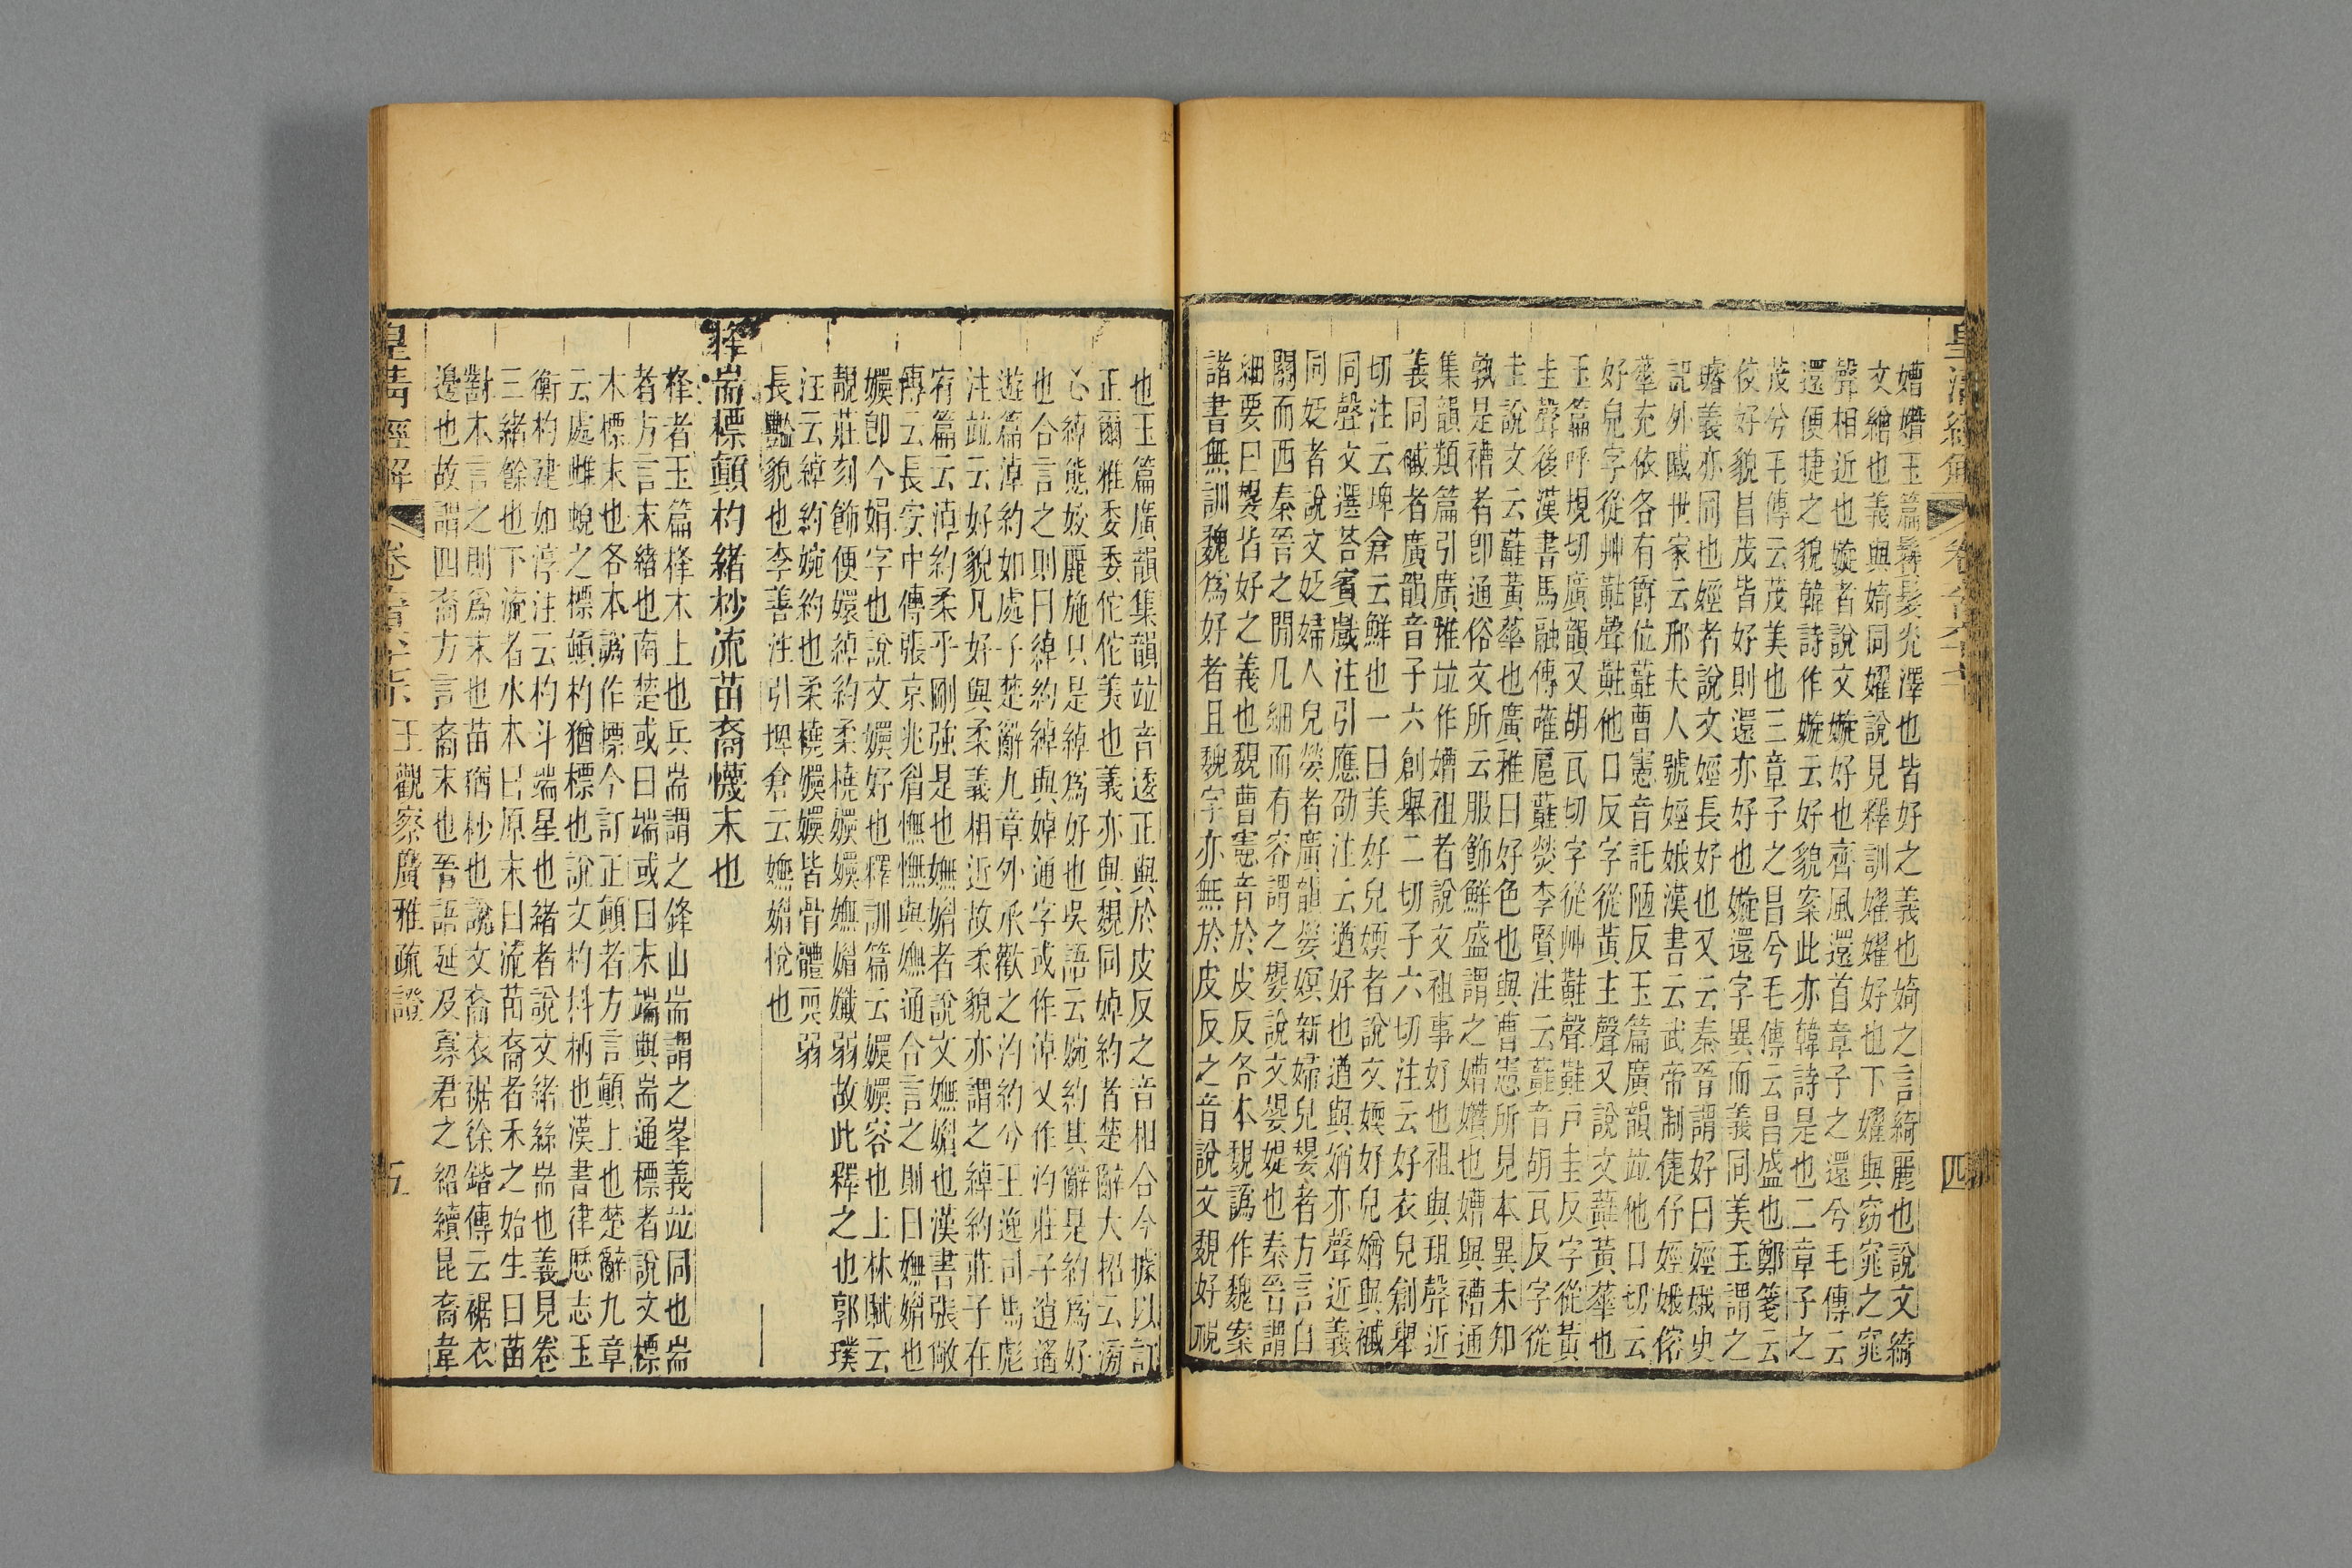 嬥嬥玉篇鬒髮光澤也皆好之義也婍之言綺麗也說文綺
文繒也義與婍同嬥說見釋訓嬥嬥好也下嬥與窈窕之窕
聲相近也嫙者說文嫙好也齊風還首章子之還兮毛傳云
還便捷之貌韓詩作嫙云好貌案此亦韓詩是也二章子之
茂兮毛傳云茂美也三章子之昌兮毛傳云昌盛也鄭箋云
佼好貌昌茂皆好則還亦好也嫙還字異而義同美玉謂之
璿義亦同也娙者說文娙長好也又云秦晉謂好曰娙娥史
記外戚世家云邢夫人號娙娥漢書云武帝制倢伃娙娥傛
華充依各有爵位蘳曹憲音託陋反玉篇廣韻竝他口切云
好皃字從艸黈聲黈他口反字從黃主聲又說文蘳黃華也
玉篇呼規切廣韻又胡瓦切字從艸黊聲黊戶圭反字從黃
圭聲後漢書馬融傳蓶扈蘳熒李賢注云蘳音胡瓦反字從
圭說文云蘳黃華也廣雅曰好色也與曹憲所見本異未知
孰是䄚者卽通俗文所云服飾鮮盛謂之嬥嬥也嬥與䄚通
集韻類篇引廣雅竝作嬥祖者說文祖事好也祖與珇聲近
義同䘿者廣韻音子六創舉二切子六切注云好衣皃創舉
切注云埤倉云鮮也一曰美好皃媆者說文媆好皃媨與䘿
同聲文選荅賓戲注引應劭注云遒好也遒與媨亦聲近義
同妶者說文妶婦人皃嫈者廣韻嫈嫇新婦皃嫢者方言自
關而西秦晉之閒凡細而有容謂之嫢說文嫢媞也秦晉謂
細要曰嫢皆好之義也覣曹憲音於皮反各本覣譌作魏案
諸書無訓魏爲好者且魏字亦無於皮反之音說文覣好視
也玉篇廣韻集韻竝音逶正與於皮反之音相合今據以訂
正爾雅委委佗佗美也義亦與覣同婥約者楚辭大招云滂
心綽態姣麗施只是綽爲好也吳語云婉約其辭是約爲好
也合言之則曰綽約綽與婥通字或作淖又作汋莊子逍遙
遊篇淖約如處子楚辭九章外承歡之汋約兮王逸司馬彪
注竝云好貌凡好與柔義相近故柔貌亦謂之綽約莊子在
宥篇云淖約柔乎剛強是也嫵媚者說文嫵媚也漢書張敞
傳云長安中傳張京兆眉憮憮與嫵通合言之則曰嫵媚也
嬽卽今娟字也說文嬽好也釋訓篇云嬽嬽容也上林賦云
靚莊刻飾便嬛綽約柔橈嬽嬽嫵媚孅弱故此釋之也郭璞
注云綽約婉約也柔橈嬽嬽皆骨體耎弱
長豔貌也李善注引埤倉云嫵媚悅也
䂜耑標顛杓緒杪流苗裔懱末也
䂜者玉篇䂜木上也兵耑謂之鋒山耑謂之峯義竝同也耑
者方言末緒也南楚或曰端或曰末端與耑通標者說文標
木標末也各本譌作摽今訂正顛者方言顛上也楚辭九章
云處雌蜺之標顛杓猶標也說文杓枓柄也漢書律厤志玉
衡杓建如淳注云杓斗端星也緒者說文緒絲耑也義見卷
三緒餘也下流者水本曰原末曰流苗裔者禾之始生曰苗
對本言之則爲末也苗猶杪也說文裔衣裾徐鍇傳云裾衣
邊也故謂四裔方言裔末也晉語延及寡君之紹續昆裔韋
皇淸經解 卷六百六十六 王觀察廣雅疏證 五
皇淸經解 卷六百六十六 四